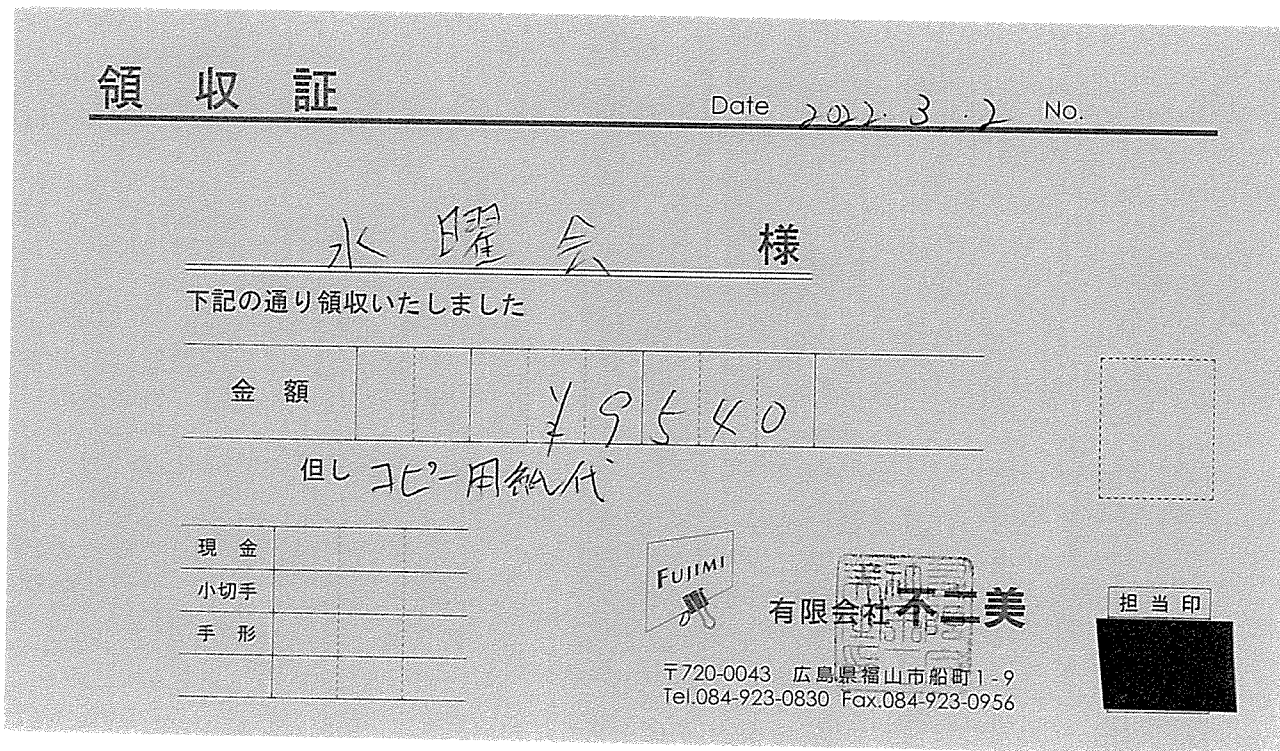 領収証
Date 2022.3.2 No.
水曜会 様
下記の通り領収いたしました
金額 ¥9540
但し コピー用紙代
現金
小切手
手形
FUJIMI
有限会社不二美
担当印
〒720-0043 広島県福山市船町1-9
Tel.084-923-0830 Fax.084-923-0956